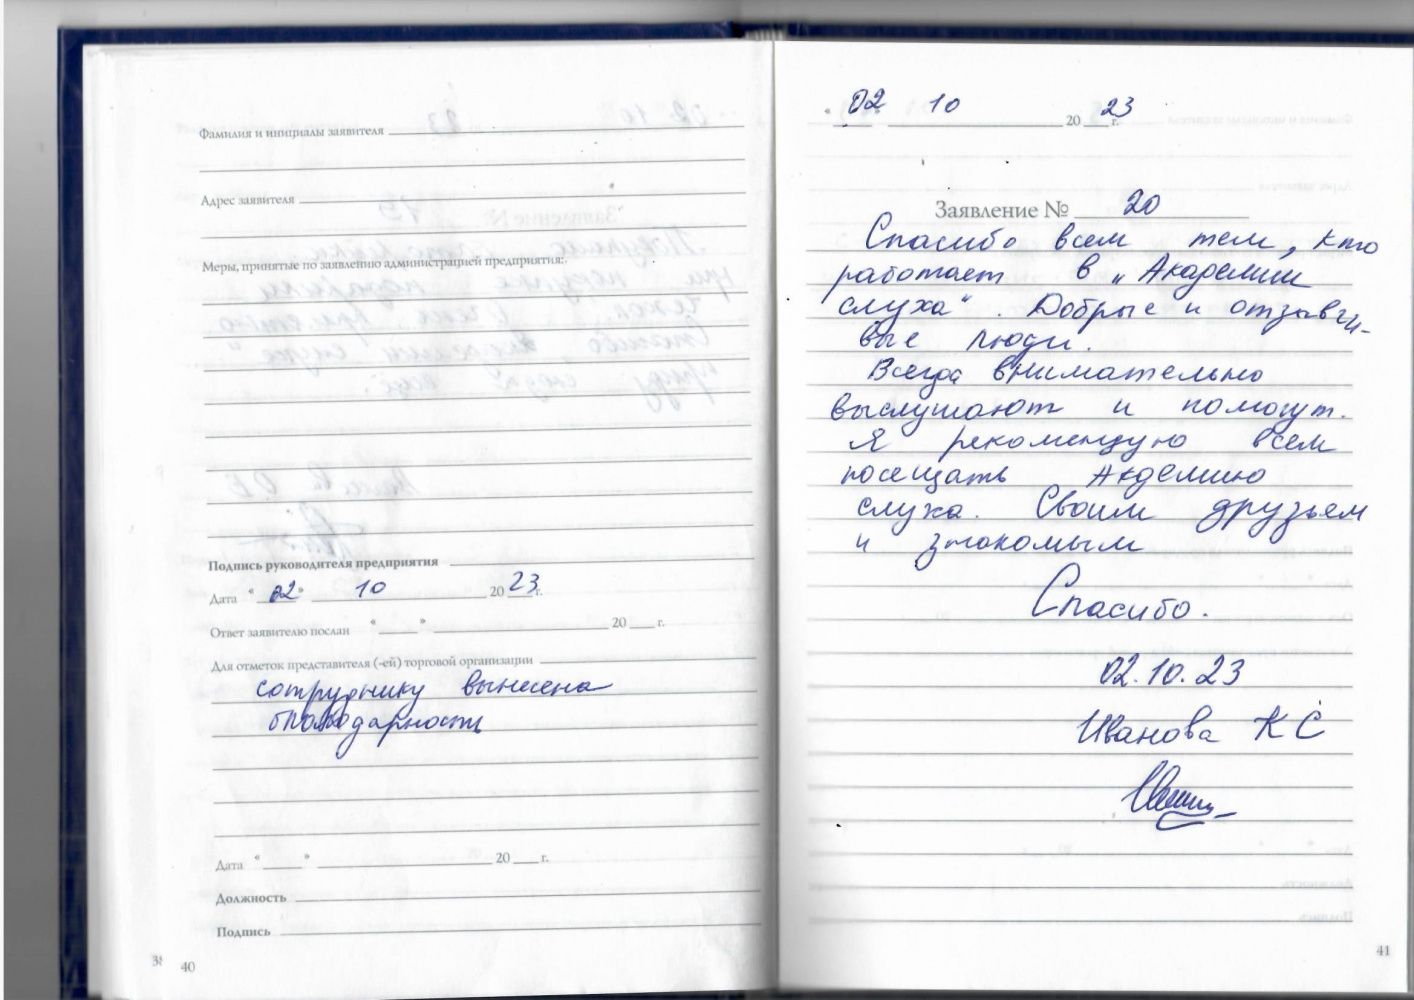 Фамилия и инициалы заявителя
Адрес заявителя
Меры, принятые по заявлению администрацией предприятия:
Подпись руководителя предприятия
Дата « 02 » 10 20 23 г.
Ответ заявителю послан « » 20 г.
Для отметок представителя (-ей) торговой организации
сотруднику вынесена
благодарность
Дата « » 20 г.
Должность
Подпись
40
« 02 10 20 23 г.
Заявление № 20
Спасибо всем тем, кто
работает в „Академии
слуха“. Добрые и отзывчи-
вые люди.
Всегда внимательно
выслушают и помогут.
Я рекомендую всем
посещать Акдемию
слуха. Своим друзьям
и знакомым
Спасибо.
02.10.23
Иванова К С
41